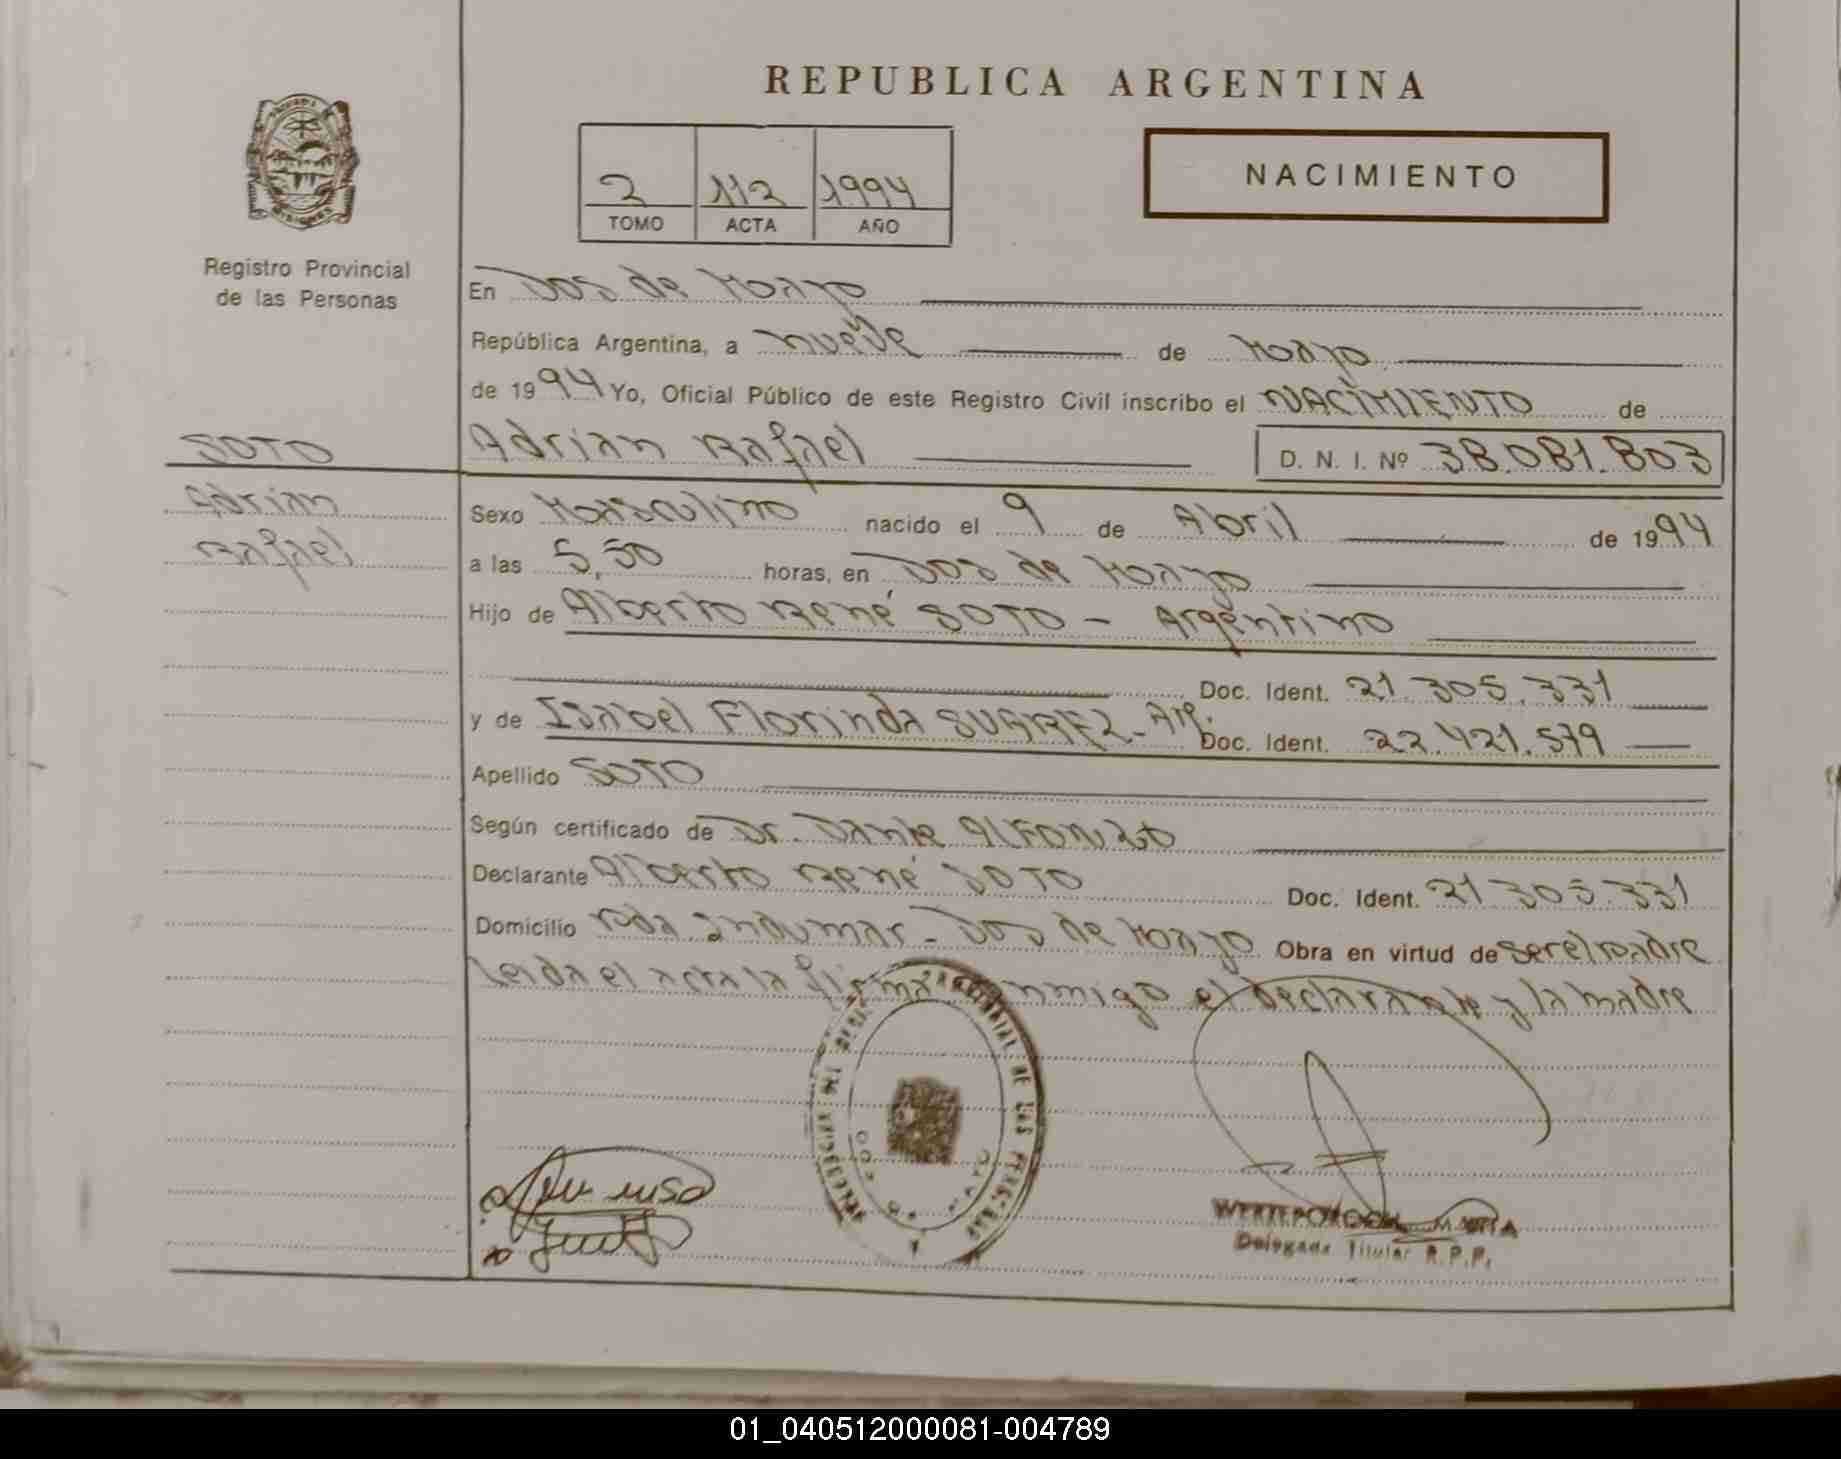 REPUBLICA ARGENTINA
NACIMIENTO
2 112 1994
TOMO ACTA AÑO
Registro Provincial
de las Personas
En Dos de Mayo
República Argentina, a nueve de Mayo
de 1994 Yo, Oficial Público de este Registro Civil inscribo el NACIMIENTO de
SOTO
Adrian Rafael D. N. I. Nº 38.081.803
Adrian
Rafael
Sexo Masculino nacido el 9 de Abril de 1994
a las 5,50 horas, en Dos de Mayo
Hijo de Alberto René SOTO - Argentino
Doc. Ident. 21.305.331
y de Isabel Florinda SUAREZ - Arg. Doc. Ident. 22.421.579
Apellido SOTO
Según certificado de Dr. Dante Alfonzo
Declarante Alberto René SOTO Doc. Ident. 21.305.331
Domicilio Dos de Mayo Obra en virtud de ser el padre
Leida el acta la firma conmigo el declarante y la madre
PROVINCIAL DE LAS PERSONAS
DOS DE MAYO
Delegada Titular R.P.P.
01_040512000081-004789